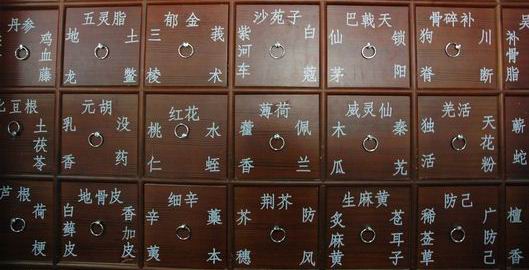 丹参
鸡血藤
五灵脂
地龙
土鳖
郁金
三棱
莪术
沙苑子
紫河车
白蔻
巴戟天
仙茅
锁阳
骨碎补
狗脊
川断
补骨脂
豆根
土茯苓
元胡
乳香
没药
红花
桃仁
水蛭
薄荷
藿香
佩兰
威灵仙
木瓜
秦艽
羌活
独活
天花粉
蕲蛇
芦根
荷梗
地骨皮
白鲜皮
香加皮
细辛
辛夷
藁本
荆芥
芥穗
防风
生麻黄
炙麻黄
苍耳子
防己
稀莶草
广防己
檀香